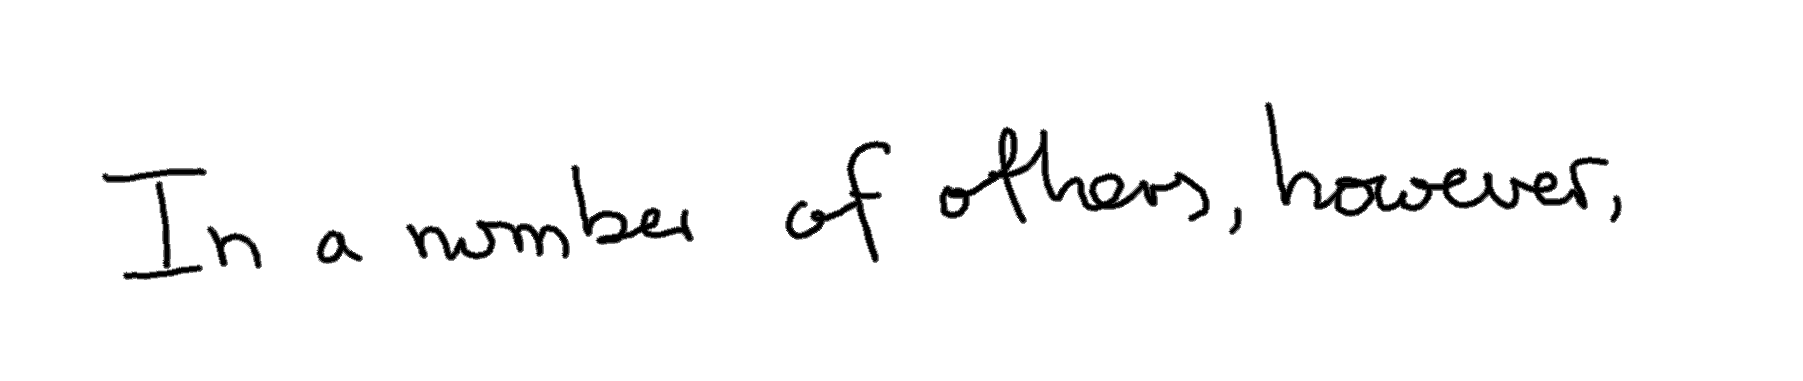 In a number of others, however,